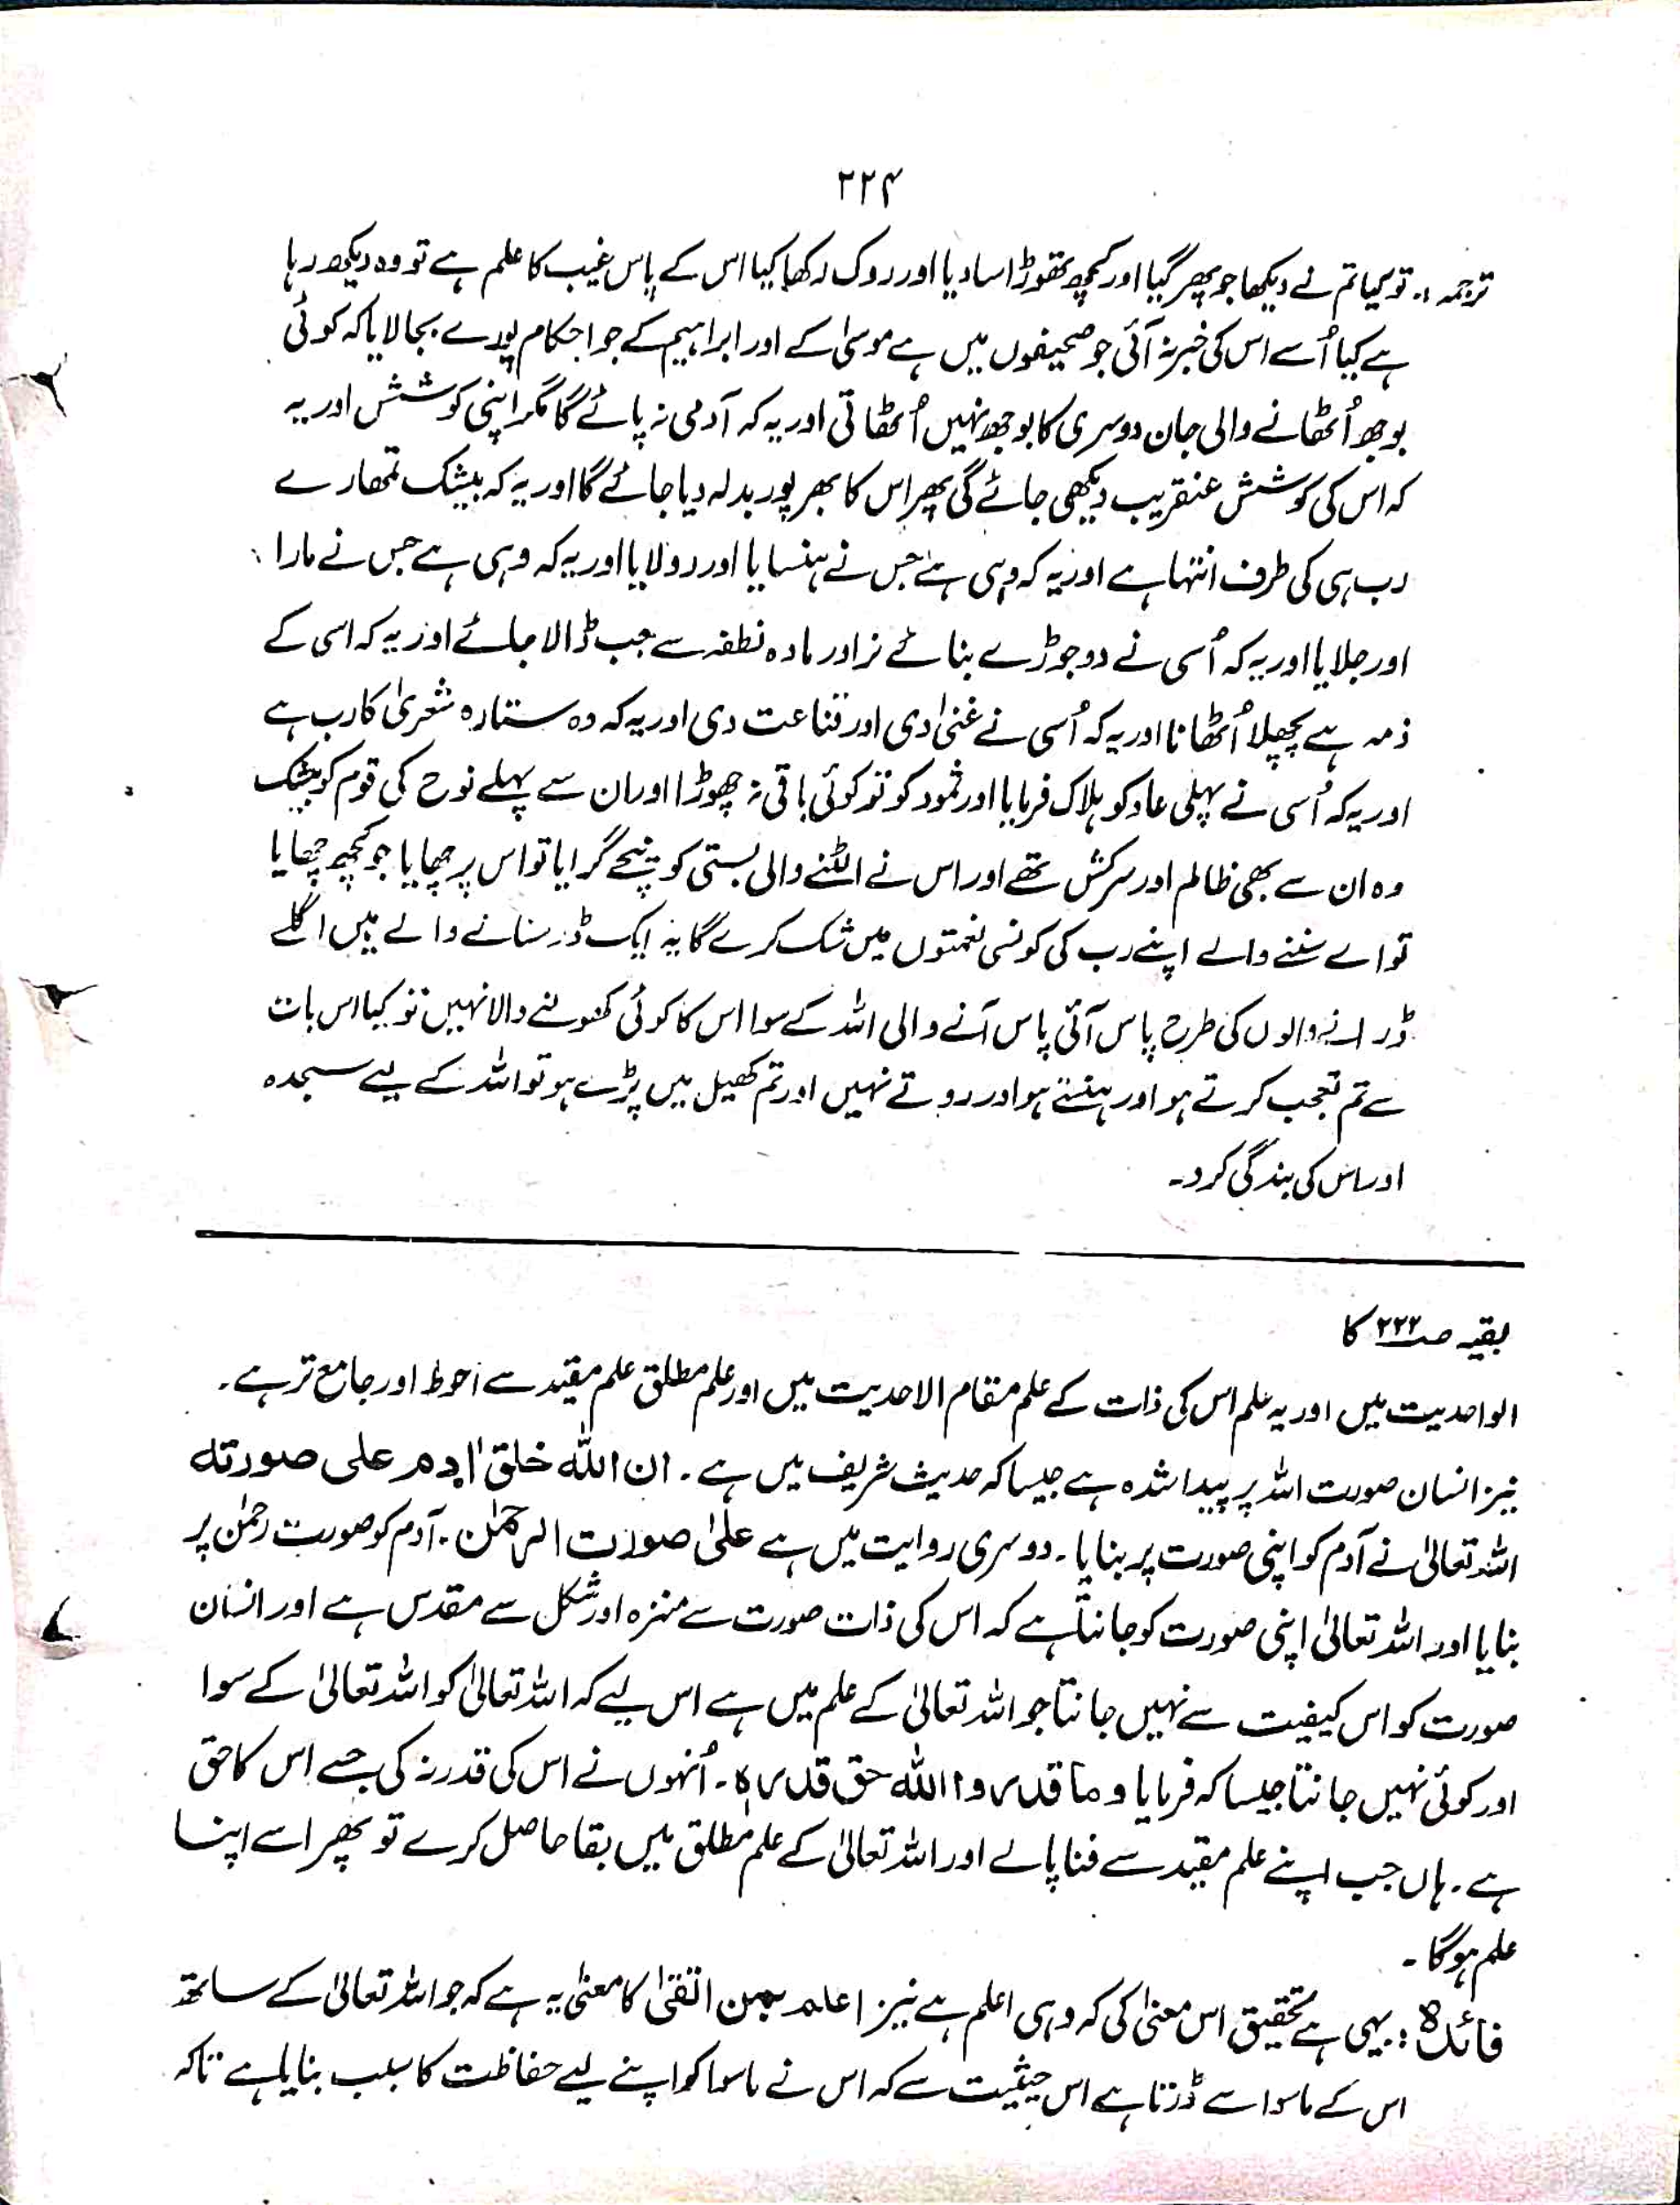 ۲۲۴
ترجمہ :۔ تو کیا تم نے دیکھا جو پھر گیا اور کچھ تھوڑا سا دیا اور روک رکھا کیا اس کے پاس غیب کا علم ہے تو وہ دیکھ رہا
ہے کیا اُسے اس کی خبر نہ آئی جو صحیفوں میں ہے موسیٰ کے اور ابراہیم کے جو احکام پورے بجا لایا کہ کوئی
بوجھ اُٹھانے والی جان دوسری کا بوجھ نہیں اُٹھاتی اور یہ کہ آدمی نہ پائے گا مگر اپنی کوشش اور یہ
کہ اس کی کوشش عنقریب دیکھی جائے گی پھر اس کا بھر پور بدلہ دیا جائے گا اور یہ کہ بیشک تمھارے
رب ہی کی طرف انتہا ہے اور یہ کہ وہی ہے جس نے ہنسایا اور رولایا اور یہ کہ وہی ہے جس نے مارا
اور جلایا اور یہ کہ اُسی نے دو جوڑے بنائے نر اور مادہ نطفہ سے جب ڈالا جائے اور یہ کہ اسی کے
ذمہ ہے پچھلا اُٹھانا اور یہ کہ اُسی نے غنیٰ دی اور قناعت دی اور یہ کہ وہ ستارہ شعریٰ کا رب ہے
اور یہ کہ اُسی نے پہلی عاد کو ہلاک فرمایا اور ثمود کو تو کوئی باقی نہ چھوڑا اور ان سے پہلے نوح کی قوم کو بیشک
وہ ان سے بھی ظالم اور سرکش تھے اور اس نے الٹنے والی بستی کو نیچے گرایا تو اس پر چھایا جو کچھ چھایا
تو اے سننے والے اپنے رب کی کونسی نعمتوں میں شک کرے گا یہ ایک ڈر سنانے والے ہیں اگلے
ڈرانے والوں کی طرح پاس آئی پاس آنے والی اللہ کے سوا اس کا کوئی کھولنے والا نہیں تو کیا اس بات
سے تم تعجب کرتے ہو اور ہنستے ہو اور روتے نہیں اور تم کھیل میں پڑے ہو تو اللہ کے لیے سجدہ
اور اس کی بندگی کرو۔
بقیہ صـ ۲۲۲ کا
الواحدیت میں اور یہ علم اس کی ذات کے علم مقام الاحدیت میں اور علم مطلق علم مقید سے احوط اور جامع تر ہے۔
نیز انسان صورت اللہ پر پیدا شدہ ہے جیسا کہ حدیث شریف میں ہے۔ ان اللہ خلق اٰدم علی صورتہ
اللہ تعالیٰ نے آدم کو اپنی صورت پر بنایا۔ دوسری روایت میں ہے علیٰ صورت الرحمٰن۔ آدم کو صورت رحمٰن پر
بنایا اور اللہ تعالیٰ اپنی صورت کو جانتا ہے کہ اس کی ذات صورت سے منزہ اور شکل سے مقدس ہے اور انسان
صورت کو اس کیفیت سے نہیں جانتا جو اللہ تعالیٰ کے علم میں ہے اس لیے کہ اللہ تعالیٰ کو اللہ تعالیٰ کے سوا
اور کوئی نہیں جانتا جیسا کہ فرمایا وما قدروا اللہ حق قدرہ۔ اُنہوں نے اس کی قدر نہ کی جسے اس کا حق
ہے۔ ہاں جب اپنے علم مقید سے فنا پالے اور اللہ تعالیٰ کے علم مطلق میں بقا حاصل کرے تو پھر اسے اپنا
علم ہوگا۔
فائدہ : یہی ہے تحقیق اس معنیٰ کی کہ وہی اعلم ہے نیز اعلم بمن اتقیٰ کا معنیٰ یہ ہے کہ جو اللہ تعالیٰ کے ساتھ
اس کے ماسوا سے ڈرتا ہے اس حیثیت سے کہ اس نے ماسوا کو اپنے لیے حفاظت کا سبب بنایا ہے تاکہ